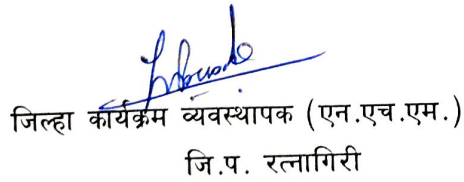 जिल्हा कार्यक्रम व्यवस्थापक (एन.एच.एम.)
जि.प. रत्नागिरी